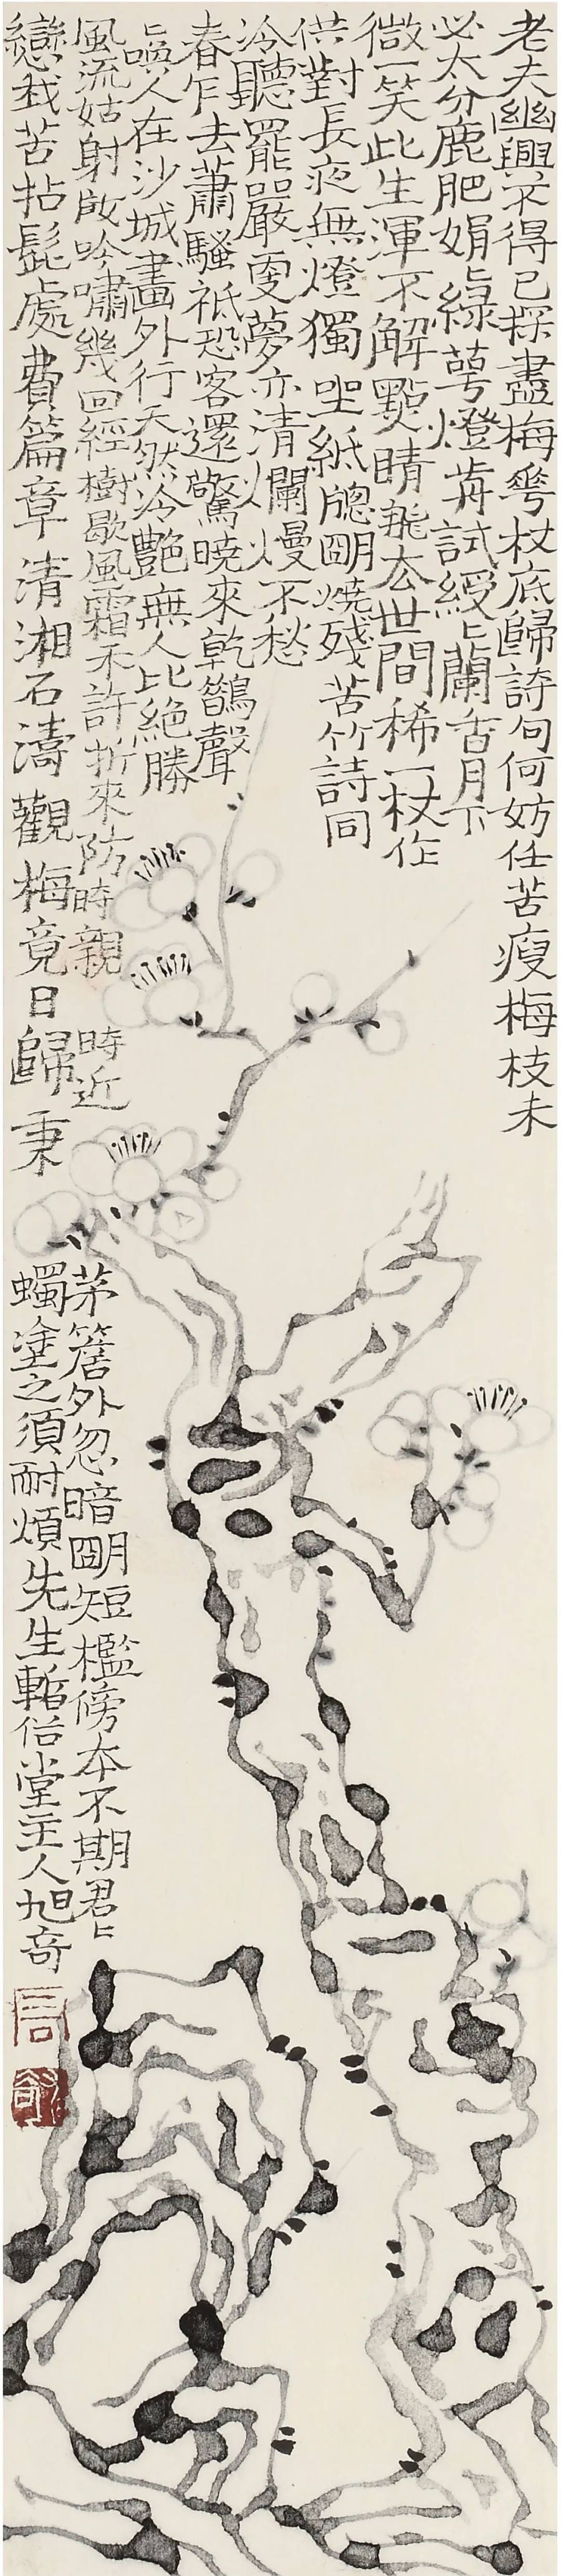 老夫幽興不得已探盡梅華杖底歸詩句何妨任苦瘦梅枝未
必太分鹿肥娟〻綠萼燈前試緩〻蘭香月下
微一笑此生渾不解點睛龍去世間稀一枝作
供對長夜無燈獨坐紙牕朙燒殘苦竹詩同
冷聽罷嚴更夢亦清爛熳不愁
春乍去蕭騷祇恐客還驚曉來乾鵲聲
〻喚人在沙城畫外行天然冷艷無人比絕勝
風流姑射啟吟嘯幾回經樹歇風霜不許折來防時親時近茅簷外忽暗朙短檻傍本不期君〻
戀我苦拈髭處費篇章清湘石濤觀梅竟日歸秉燭塗之須耐煩先生俗堂主人旭奇